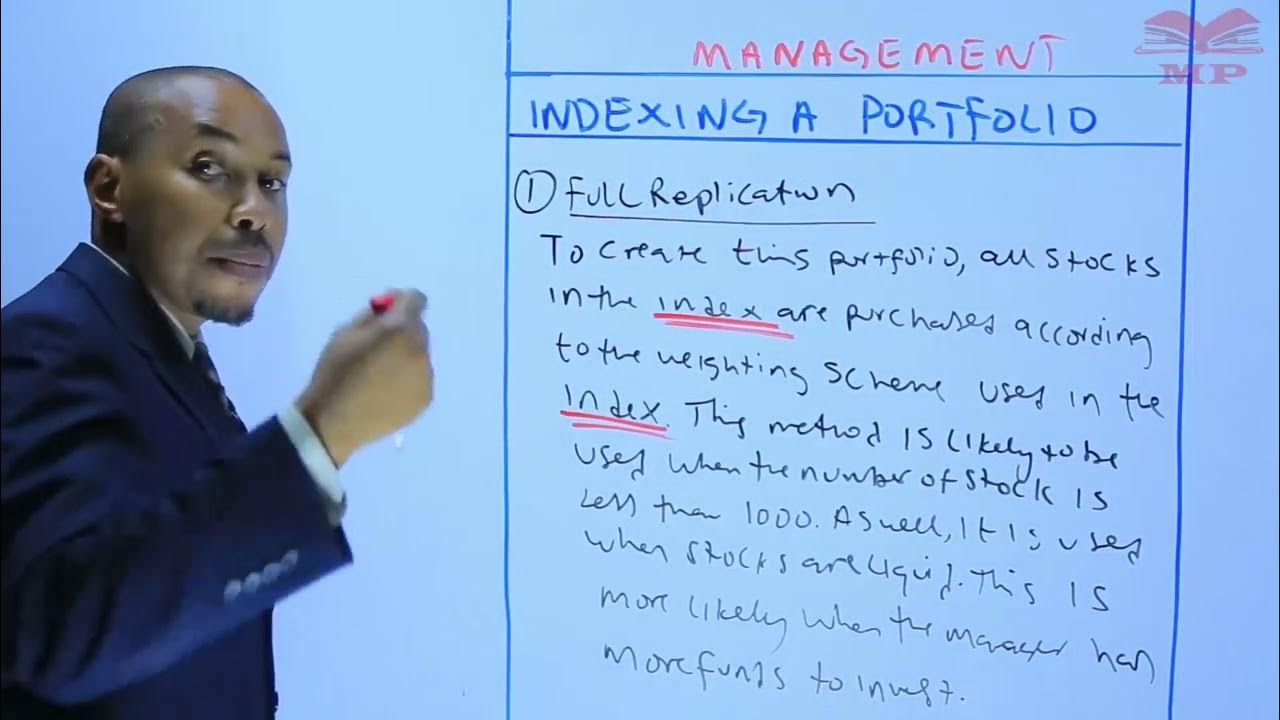 MANAGEMENT
MP
INDEXING A PORTFOLIO
① Full Replication
To create this portfolio, all stocks
in the index are purchased according
to the weighting scheme used in the
index. This method is likely to be
used when the number of stock is
less than 1000. As well, it is used
when stocks are liquid. This is
more likely when the manager has
more funds to invest.